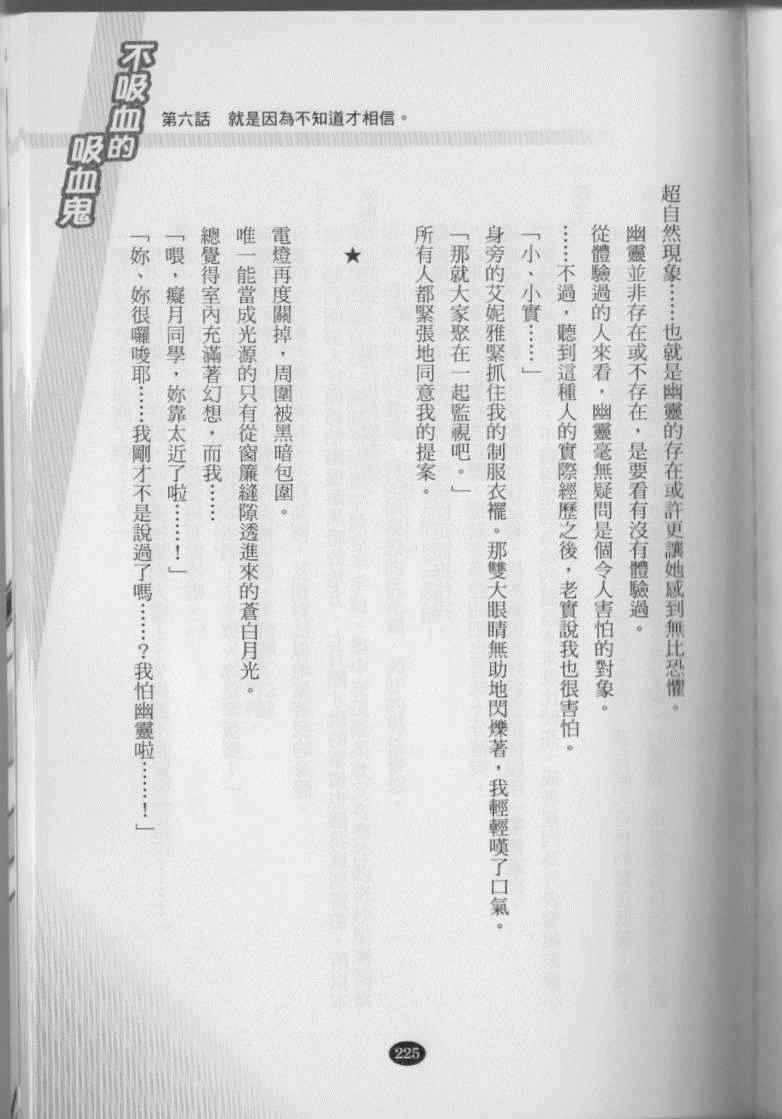 不吸血的
吸血鬼
第六話　就是因為不知道才相信。
超自然現象……也就是幽靈的存在或許更讓她感到無比恐懼。
幽靈並非存在或不存在，是要看有沒有體驗過。
從體驗過的人來看，幽靈毫無疑問是個令人害怕的對象。
……不過，聽到這種人的實際經歷之後，老實說我也很害怕。
「小、小實……」
身旁的艾妮雅緊抓住我的制服衣襬。那雙大眼睛無助地閃爍著，我輕輕嘆了口氣。
「那就大家聚在一起監視吧。」
所有人都緊張地同意我的提案。
★
電燈再度關掉，周圍被黑暗包圍。
唯一能當成光源的只有從窗簾縫隙透進來的蒼白月光。
總覺得室內充滿著幻想，而我……
「喂，癡月同學，妳靠太近了啦……！」
「妳、妳很囉唆耶……我剛才不是說過了嗎……？我怕幽靈啦……！」
225